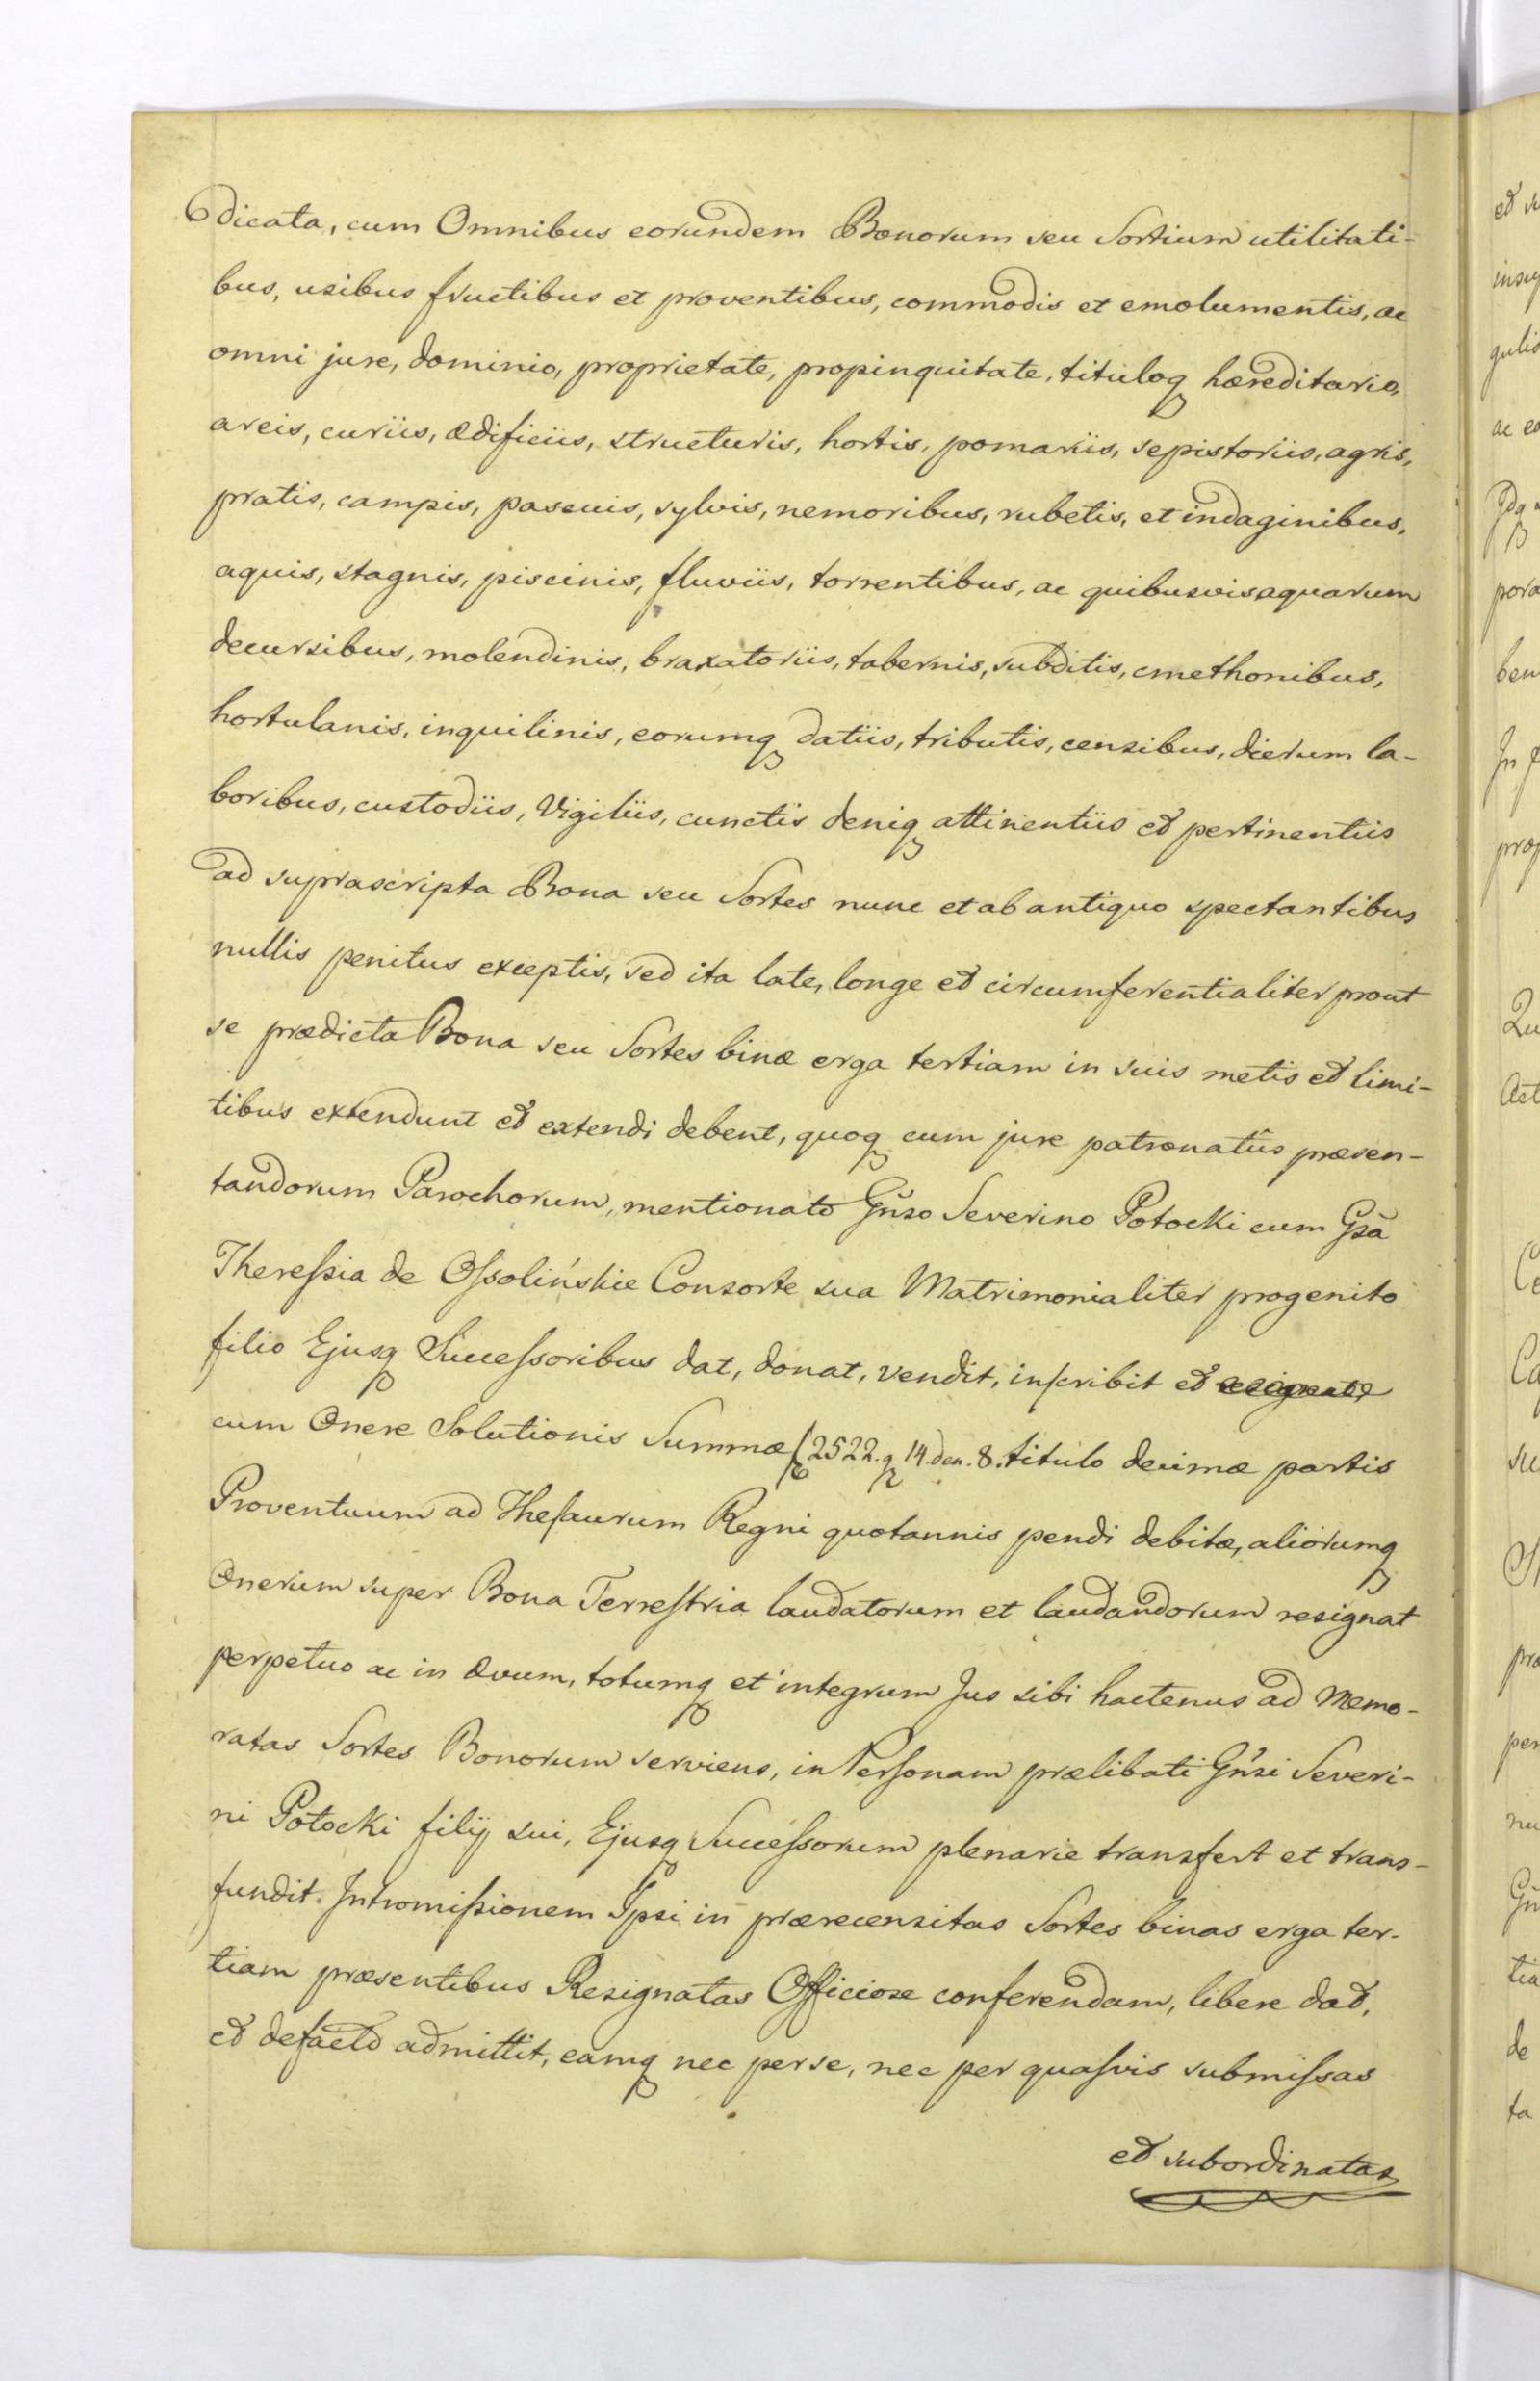 dicata, cum Omnibus eorundem Bonorum seu Sortium utilitati-
bus, usibus fructibus et proventibus, commodis et emolumentis, ac
omni jure, dominio, proprietate, propinquitate, tituloq hæreditario,
areis, curiis, ædificiis, structuris, hortis, pomariis, sepistoriis, agris,
pratis, campis, pascuis, sylvis, nemoribus, rubetis, et indaginibus,
aquis, stagnis, piscinis, fluviis, torrentibus, ac quibusvis aquarum
decursibus, molendinis, braxatoriis, tabernis, subditis, cmethonibus,
hortulanis, inquilinis, eorumq datiis, tributis, censibus, dierum la-
boribus, custodiis, Vigiliis, cunctis deniq attinentiis et pertinentiis
ad suprascripta Bona seu Sortes nunc et ab antiquo spectantibus
nullis penitus exceptis, sed ita late, longe et circumferentialiter prout
se prædicta Bona seu Sortes binæ erga tertiam in suis metis et limi-
tibus extendunt et extendi debent, quoq cum jure patronatûs præsen-
tandorum Parochorum, mentionato Gn̄so Severino Potocki cum Gsā
Theressia de Ossolińskie Consorte sua Matrimonialiter progenito
filio Ejusq Successoribus dat, donat, vendit, inscribit et
cum Onere Solutionis Summæ 2522. g 14. den. 8. titulo decimæ partis
Proventuum ad Thesaurum Regni quotannis pendi debitæ, aliorumq
Onerum super Bona Terrestria laudatorum et laudandorum resignat
perpetuo ac in ævum, totumq et integrum Jus sibi hactenus ad Memo-
ratas Sortes Bonorum serviens, in Personam prælibati Gn̄si Severi-
ni Potocki filij sui, Ejusq Successorum plenarie transfert et trans-
fundit. Intromissionem Ipsi in prærecensitas Sortes binas erga ter-
tiam præsentibus Resignatas Officiose conferendam, libere dat,
et defacto admittit, eamq nec per se, nec per quasvis submissas
et subordinatas